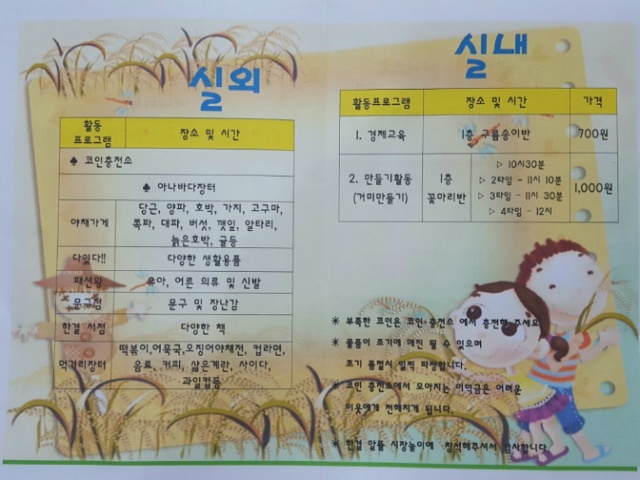 실외
활동 프로그램 | 장소 및 시간
♠ 코인충전소
♠ 아나바다장터
야채가게 | 당근, 양파, 호박, 가지, 고구마,
쪽파, 대파, 버섯, 깻잎, 알타리,
늙은호박, 귤등
다있다!! | 다양한 생활용품
패션왕 | 유아, 어른 의류 및 신발
문구점 | 문구 및 장난감
한결 서점 | 다양한 책
먹거리장터 | 떡볶이,어묵국,오징어야채전, 컵라면,
음료, 커피, 삶은계란, 사이다,
과일컵등
실내
활동프로그램 | 장소 및 시간 | 가격
1. 경제교육 | 1층 구름송이반 | 700원
2. 만들기활동 (거미만들기) | 1층 꽃마리반 | ▷ 10시30분
▷ 2타임 - 11시 10분
▷ 3타임 - 11시 30분
▷ 4타임 - 12시
1,000원
※ 부족한 코인은 코인 충전소 에서 충전해 주세요
※ 물품이 조기에 매진 될 수 있으며
조기 품절시 일찍 파장합니다.
※ 코인 충전소에서 모아지는 이익금은 어려운
이웃에게 전해지게 됩니다.
※ 한결 알뜰 시장놀이에 참석해주셔서 감사합니다.